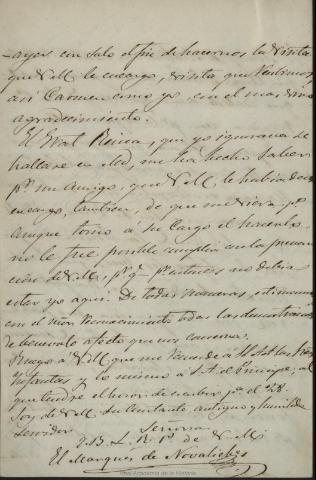 -ayer con solo el fin de hacernos la visita
que V.M. le encargó, visita que recibimos
asi Carmen como yo con el mas vivo
agradecimiento.
El Gral Reina, que yo ignoraba se
hallase en Md, me ha hecho saber
pr un amigo, que V.M. le habia dado
encargo, tambien, de que me viera, pº
aunque tomó a su cargo el hacerlo
no le fue posible cumplir con la preven
cion de V.M., pr qe entonces no debia
estar yo aqui. De todas maneras, estimamos
con el mayor reconocimiento todas las demostraciones
de benevolo afecto que nos conserva.
Ruego a V.M. que me recuerde a SS.AA. las
Infantas, y lo mismo a S.A. el Principe, al
que tendré el honor de escribir pª el 28.
Soy de V.M. su constante antiguo y humilde
servidor
Señora
A. L. R. P. de V.M.
El Marqués de Novaliches
Real Academia de la Historia